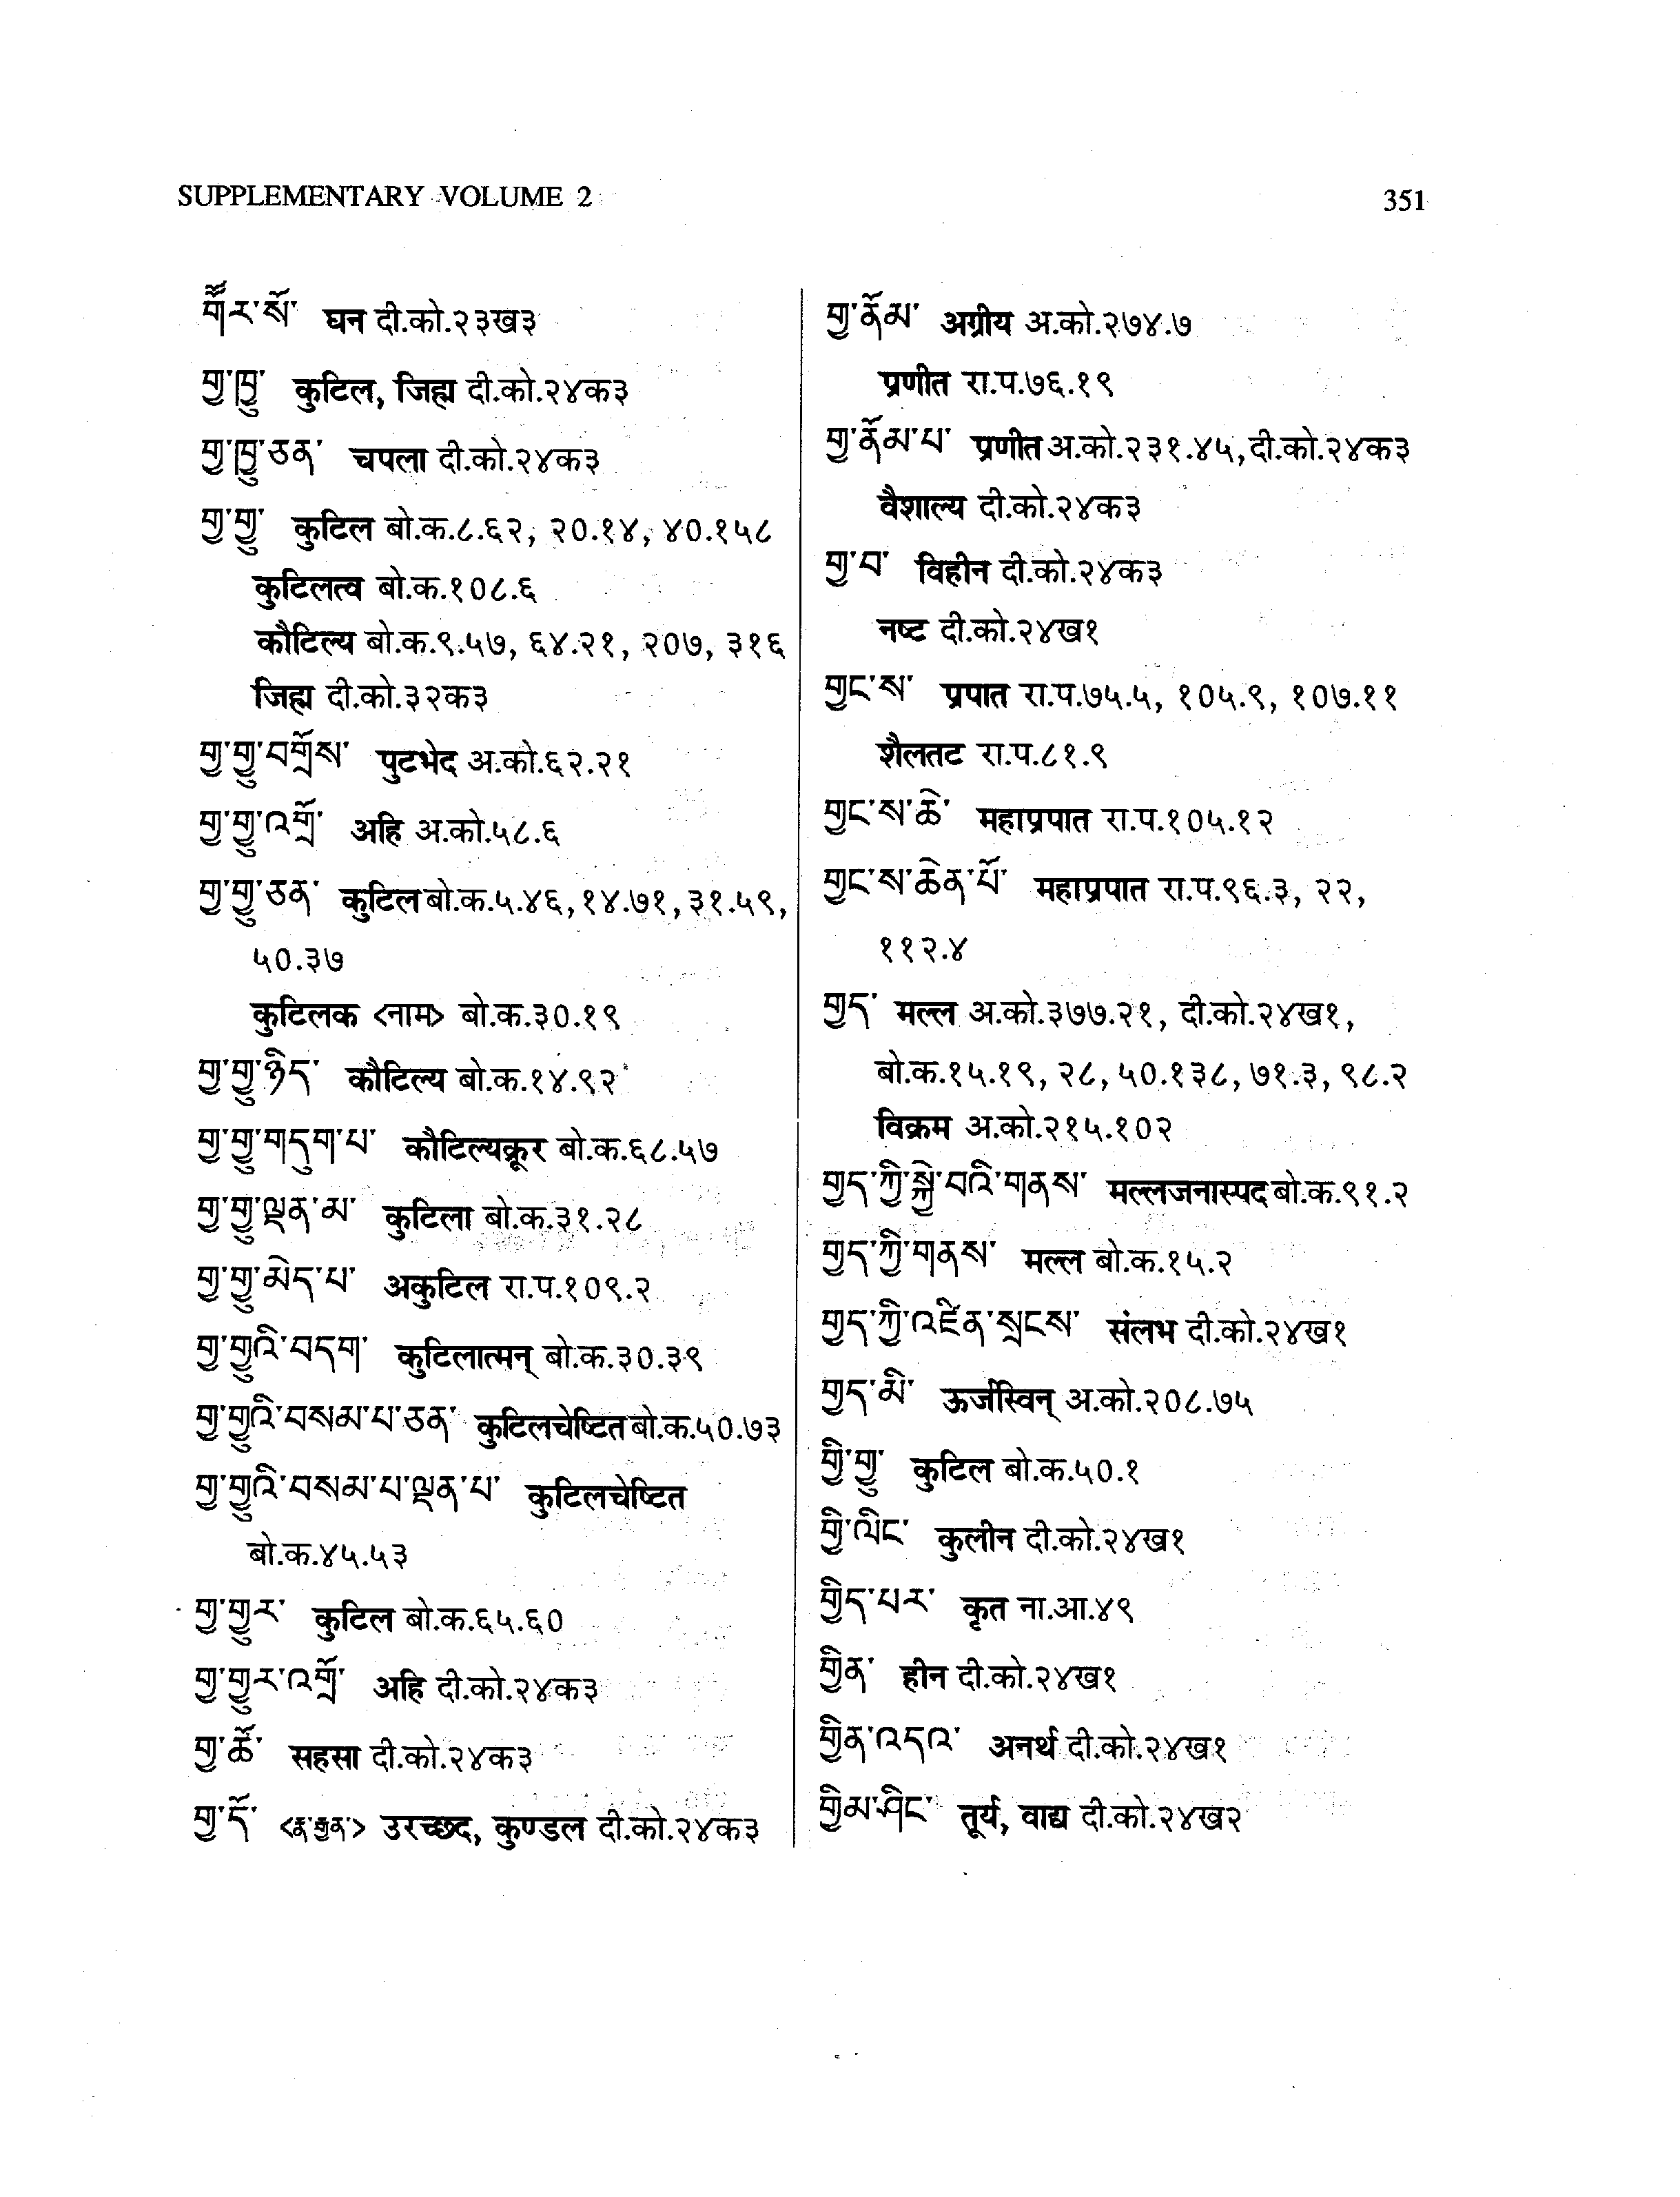 SUPPLEMENTARY VOLUME 2
351
གཽར་སོ་ घन दी.को.२३ख३
གྱ་ཁྱུ་ कुटिल, जिह्म दी.को.२४क३
གྱ་ཁྱུ་ཅན་ चपला दी.को.२४क३
གྱ་གྱུ་ कुटिल बो.क.८.६२, २०.१४, ४०.१५८
कुटिलत्व बो.क.१०८.६
कौटिल्य बो.क.९.५७, ६४.२१, २०७, ३१६
जिह्म दी.को.३२क३
གྱ་གྱུ་བགྲོས་ पुटभेद अ.को.६२.२१
གྱ་གྱུ་འགྲོ་ अहि अ.को.५८.६
གྱ་གྱུ་ཅན་ कुटिल बो.क.५.४६, १४.७१, ३१.५९,
५०.३७
कुटिलक <नाम> बो.क.३०.१९
གྱ་གྱུ་ཉིད་ कौटिल्य बो.क.१४.९२
གྱ་གྱུ་གདུག་པ་ कौटिल्यक्रूर बो.क.६८.५७
གྱ་གྱུ་ལྡན་མ་ कुटिला बो.क.३१.२८
གྱ་གྱུ་མེད་པ་ अकुटिल रा.प.१०९.२
གྱ་གྱུའི་བདག་ कुटिलात्मन् बो.क.३०.३९
གྱ་གྱུའི་བསམ་པ་ཅན་ कुटिलचेष्टित बो.क.५०.७३
གྱ་གྱུའི་བསམ་པ་ལྡན་པ་ कुटिलचेष्टित
बो.क.४५.५३
གྱ་གྱུར་ कुटिल बो.क.६५.६०
གྱ་གྱུར་འགྲོ་ अहि दी.को.२४क३
གྱ་ཚོ་ सहसा दी.को.२४क३
གྱ་དོ་ <རྣ་རྒྱན་> उरच्छद, कुण्डल दी.को.२४क३
གྱ་ནོམ་ अग्रीय अ.को.२७४.७
प्रणीत रा.प.७६.१९
གྱ་ནོམ་པ་ प्रणीत अ.को.२३१.४५, दी.को.२४क३
वैशाल्य दी.को.२४क३
གྱ་བ་ विहीन दी.को.२४क३
नष्ट दी.को.२४ख१
གྱང་ས་ प्रपात रा.प.७५.५, १०५.९, १०७.११
शैलतट रा.प.८१.९
གྱང་ས་ཆེ་ महाप्रपात रा.प.१०५.१२
གྱང་ས་ཆེན་པོ་ महाप्रपात रा.प.९६.३, २२,
११२.४
གྱད་ मल्ल अ.को.३७७.२१, दी.को.२४ख१,
बो.क.१५.१९, २८, ५०.१३८, ७१.३, ९८.२
विक्रम अ.को.२१५.१०२
གྱད་ཀྱི་སྐྱེ་བའི་གནས་ मल्लजनास्पद बो.क.९१.२
གྱད་ཀྱི་གནས་ मल्ल बो.क.१५.२
གྱད་ཀྱི་འཛིན་སྲངས་ संलभ दी.को.२४ख१
གྱད་མི་ ऊर्जस्विन् अ.को.२०८.७५
གྱི་གྱུ་ कुटिल बो.क.५०.१
གྱི་ལིང་ कुलीन दी.को.२४ख१
གྱིད་པར་ कृत ना.आ.४९
གྱིན་ हीन दी.को.२४ख१
གྱིན་འདའ་ अनर्थ दी.को.२४ख१
གྱིམ་ཤིང་ तूर्य, वाद्य दी.को.२४ख२